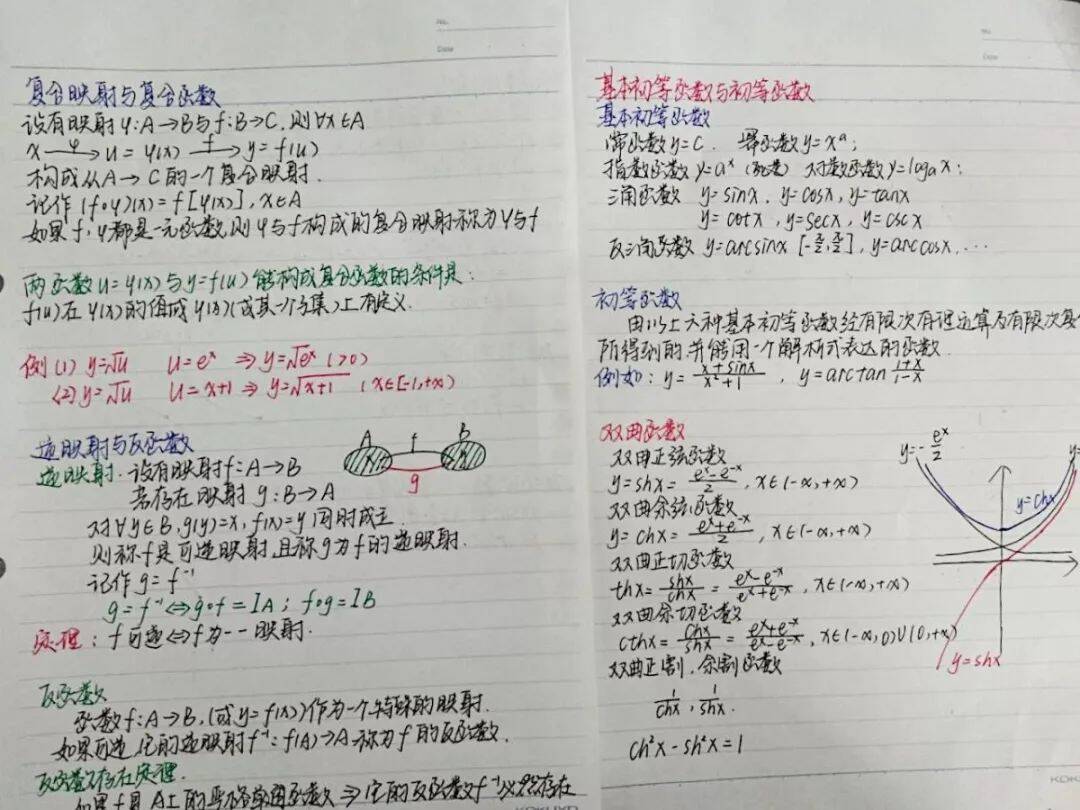 No.
Date
复合映射与复合函数
设有映射φ:A→B与f:B→C,则∀x∈A
x —φ→ u=φ(x) —f→ y=f(u)
构成从A→C的一个复合映射.
记作(f∘φ)(x)=f[φ(x)],x∈A
如果f,φ都是一元函数,则φ与f构成的复合映射称为φ与f
两函数u=φ(x)与y=f(u)能构成复合函数的条件是:
f(u)在φ(x)的值域φ(A)(或其一个子集)上有定义.
例(1) y=√u  u=eˣ ⇒y=√eˣ (>0)
(2) y=√u  u=x+1 ⇒ y=√(x+1) (x∈[-1,+∞)
逆映射与反函数
逆映射.设有映射f:A→B
若存在映射 g:B→A
对∀y∈B,g(y)=x,f(x)=y同时成立.
则称f是可逆映射,且称g为f的逆映射.
记作 g=f⁻¹
g=f⁻¹⇔g∘f=IA; f∘g=IB
定理: f可逆⇔f为一一映射.
A f B
g
反函数
函数f:A→B,(或y=f(x))作为一个特殊的映射.
如果可逆,它的逆映射f⁻¹:f(A)→A称为f的反函数.
反函数存在定理.
如果f是A上的严格单调函数⇒它的反函数f⁻¹必然存在
KOKUYO
No.
Date
基本初等函数与初等函数
基本初等函数
常函数y=C. 幂函数y=xᵃ;
指数函数 y=aˣ 对数函数y=logₐx;
三角函数 y=sinx, y=cosx, y=tanx
y=cotx, y=secx, y=cscx
反三角函数 y=arcsinx [-π/2,π/2], y=arccosx, ...
初等函数
由以上六种基本初等函数经有限次有理运算及有限次复
所得到的并能用一个解析式表达的函数.
例如: y=(x+sinx)/(x²+1), y=arctan (1+x)/(1-x)
双曲函数
双曲正弦函数
y=shx=(eˣ-e⁻ˣ)/2, x∈(-∞,+∞)
双曲余弦函数
y=chx=(eˣ+e⁻ˣ)/2, x∈(-∞,+∞)
双曲正切函数
thx=shx/chx=(eˣ-e⁻ˣ)/(eˣ+e⁻ˣ), x∈(-∞,+∞)
双曲余切函数
cthx=chx/shx=(eˣ+e⁻ˣ)/(eˣ-e⁻ˣ), x∈(-∞,0)∪(0,+∞)
双曲正割.余割函数
1/chx, 1/shx.
ch²x-sh²x=1
y=-eˣ/2
y=
y=chx
y=shx